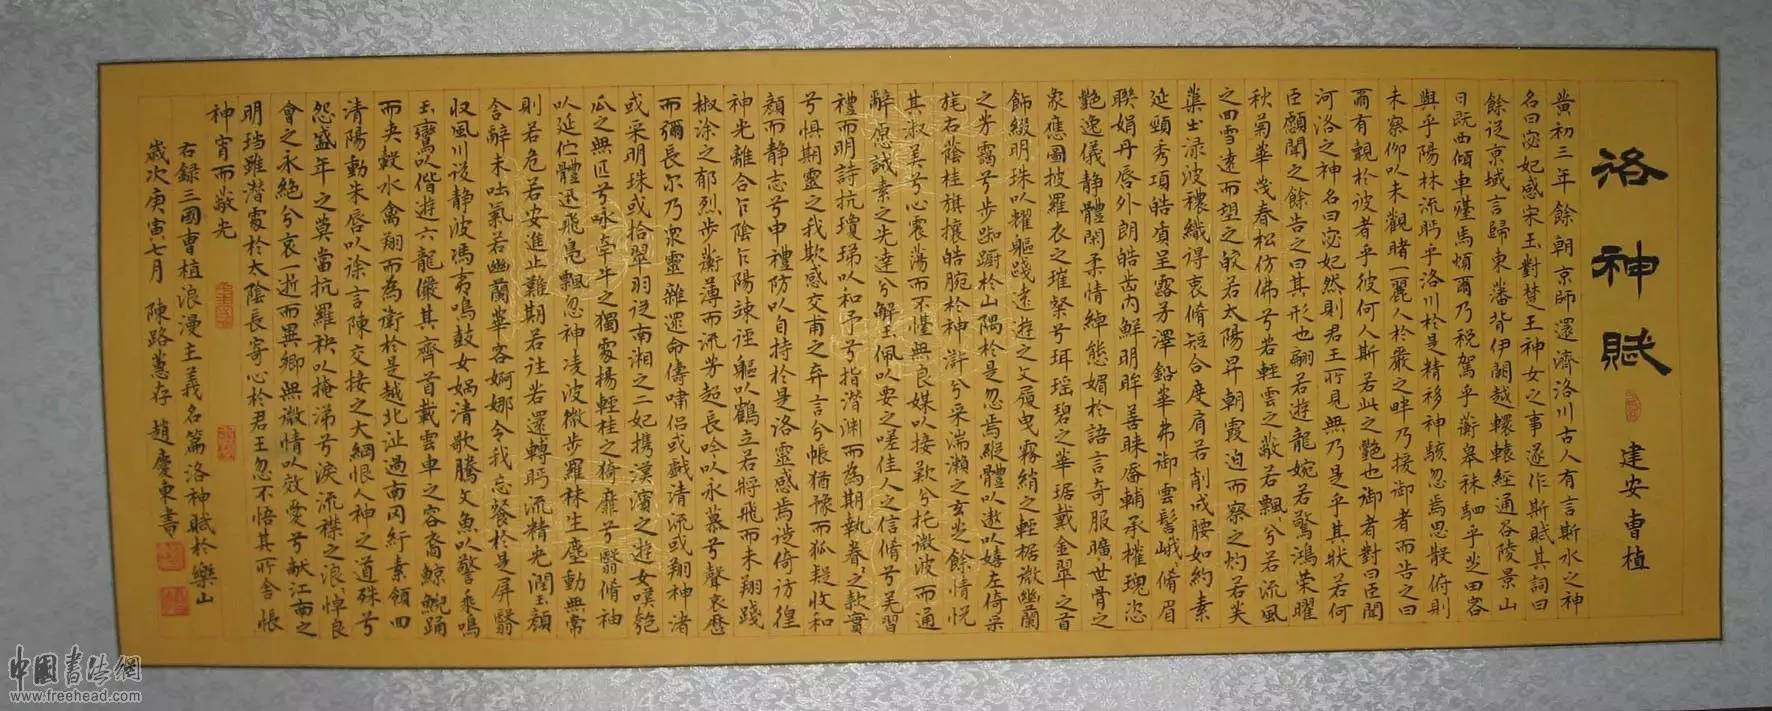 洛神賦
建安曹植
黄初三年餘朝京師還濟洛川古人有言斯水之神
名曰宓妃感宋玉對楚王神女之事遂作斯賦其詞曰
餘從京域言歸東藩背伊闕越轘轅經通谷陵景山
日既西傾車殆馬煩爾乃税駕乎蘅皋秣駟乎芝田容
與乎陽林流眄乎洛川於是精移神駭忽焉思散俯則
未察仰以未觀睹一麗人於巖之畔乃援御者而告之曰
爾有覿於彼者乎彼何人斯若此之艷也御者對曰臣聞
河洛之神名曰宓妃然則君王所見無乃是乎其狀若何
臣願聞之餘告之曰其形也翩若遊龍婉若驚鴻榮曜
秋菊華茂春松仿佛兮若輕雲之蔽若飄兮若流風
之回雪遠而望之皎若太陽昇朝霞迫而察之灼若芙
蕖出渌波穠纖得衷脩短合度肩若削成腰如約素
延頸秀項皓質呈露芳澤鉛華弗御雲髻峨脩眉
聯娟丹唇外朗皓齒内鮮明眸善睞靨輔承權瑰恣
艷逸儀静體閑柔情綽態媚於語言奇服曠世骨之
象應圖披羅衣之璀粲兮珥瑶碧之華琚戴金翠之首
飾綴明珠以耀軀踐遠遊之文履曳霧綃之輕裾微幽蘭
之芳靄兮步踟躕於山隅於是忽焉縱體以遨以嬉左倚采
旄右蔭桂旗攘皓腕於神滸兮采湍瀨之玄芝餘情悦
其淑美兮心震蕩而不懌無良媒以接歡兮托微波而通
辭愿誠素之先達兮解玉佩以要之嗟佳人之信脩兮羌習
禮而明詩抗瓊珶以和予兮指潛淵而為期執眷之款實
兮惧期靈之我欺感交甫之弃言兮悵猶豫而狐疑收和
顏而静志兮申禮防以自持於是洛靈感焉徙倚彷徨
神光離合乍陰乍陽竦輕軀以鶴立若將飛而未翔踐
椒涂之郁烈步蘅薄而流芳超長吟以永慕兮聲哀厲
而彌長尔乃眾靈雜遝命儔嘯侣或戲清流或翔神渚
或采明珠或拾翠羽從南湘之二妃携漢濱之遊女嘆匏
瓜之無匹兮咏牽牛之獨處揚輕袿之猗靡兮翳脩袖
以延伫體迅飛鳧飄忽神凌波微步羅袜生塵動無常
則若危若安進止難期若往若還轉眄流精光潤玉顏
含辭未吐氣若幽蘭華容婀娜令我忘餐於是屏翳
收風川後静波馮夷鳴鼓女媧清歌騰文魚以警乘鳴
玉鸞以偕遊六龍儼其齊首載雲車之容裔鯨鯢踊
而夹轂水禽翔而為衛於是越北沚過南岡紆素領回
清陽動朱唇以徐言陳交接之大綱恨人神之道殊兮
怨盛年之莫當抗羅袂以掩涕兮淚流襟之浪悼良
會之永絶兮哀一逝而異鄉無微情以效愛兮献江南之
明璫雖潛處於太陰長寄心於君王忽不悟其所舍悵
神宵而蔽光
右録三國曹植浪漫主義名篇洛神賦於樂山
歲次庚寅七月 陳路蕙存 趙慶東書
中國書法網
www.freehead.com